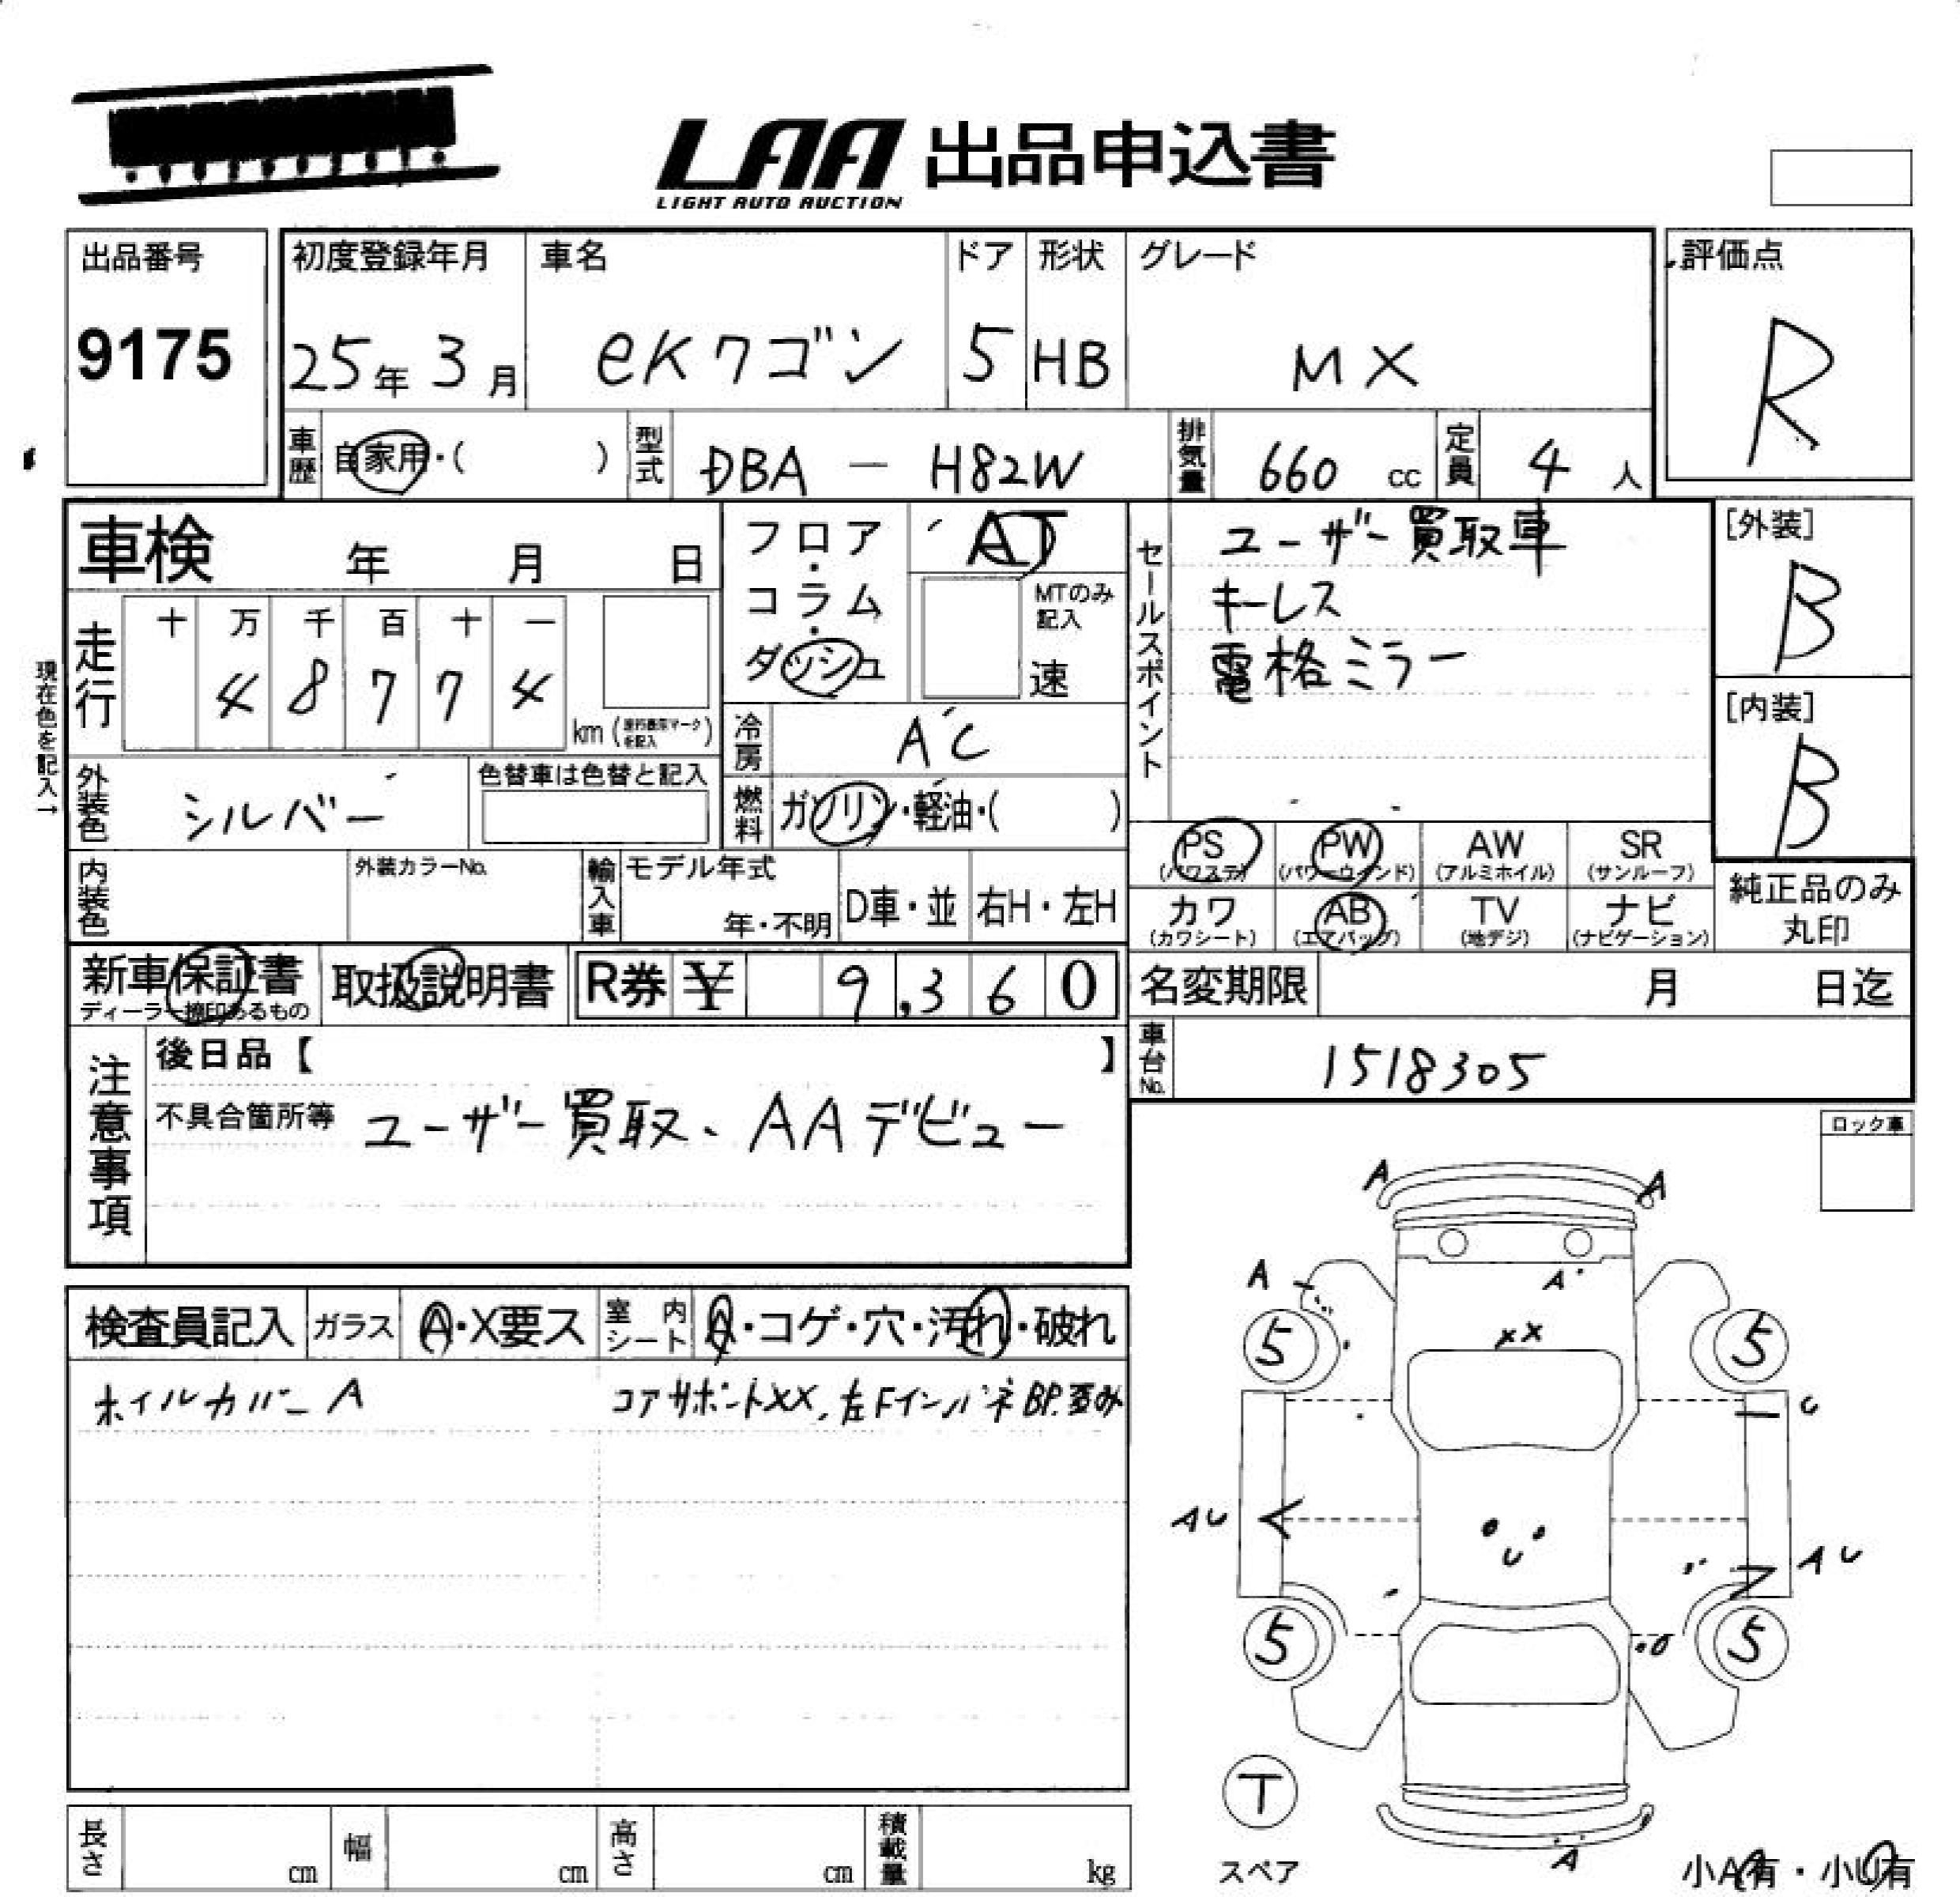 LAA 出品申込書
LIGHT AUTO AUCTION
出品番号
9175
初度登録年月
25年 3月
車名
eKワゴン
ドア
5
形状
HB
グレード
MX
評価点
R
車歴 自家用・( )
型式 DBA - H82W
排気量 660 cc
定員 4 人
車検 年 月 日
フロア・コラム・ダッシュ
AT
MTのみ記入
速
セールスポイント
ユーザー買取車
キーレス
電格ミラー
[外装]
B
[内装]
B
現在色を記入→
走行
十 万 千 百 十 一
4 8 7 7 4
km (走行表示マークを記入)
冷房 AC
燃料 ガソリン・軽油・( )
外装色 シルバー
色替車は色替と記入
内装色
外装カラーNo.
輸入車
モデル年式
年・不明
D車・並
右H・左H
PS (パワステ)
PW (パワーウィンド)
AW (アルミホイル)
SR (サンルーフ)
カワ (カワシート)
AB (エアバッグ)
TV (地デジ)
ナビ (ナビゲーション)
純正品のみ丸印
新車保証書
ディーラー捺印あるもの
取扱説明書
R券 ¥ 9,360
名変期限 月 日迄
車台No. 1518305
注意事項
後日品【 】
不具合箇所等 ユーザー買取、AAデビュー
ロック車
検査員記入
ガラス A・X要ス
室内シート A・コゲ・穴・汚れ・破れ
ホイルカバーA
コアサポートXX、左FインパネBP.歪み
A A
A A
XX
5 5
U
AU U AU
5 5
T
スペア
A
小A有・小U有
長さ cm
幅 cm
高さ cm
積載量 kg